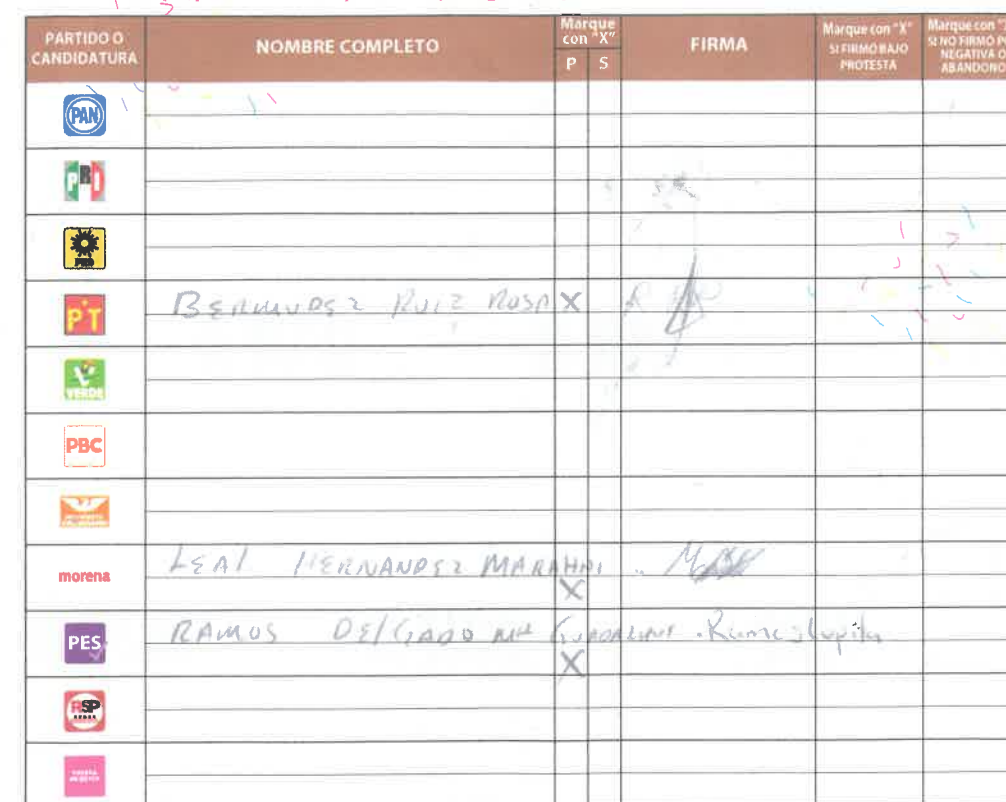 PARTIDO O CANDIDATURA NOMBRE COMPLETO Marque con "X" P S FIRMA Marque con "X" SI FIRMÓ BAJO PROTESTA Marque con SI NO FIRMÓ NEGATIVA O ABANDONO
PAN
PRI
PRD
PT BERMUDEZ RUIZ ROSA X
VERDE
PBC
morena LEAL HERNANDEZ X
PES RAMOS DELGADO Mª GUADALUPE X
RSP